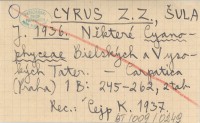 CYRUS Z.Z., ŠULA
J. 1936. Některé Cyano-
phyceae Bielských a Vyso-
kých Tater. — Carpatica
(Praha) 1 B: 245-262, 2 tab
Rec.: Cejp K. 1937.
BT 1009/0149